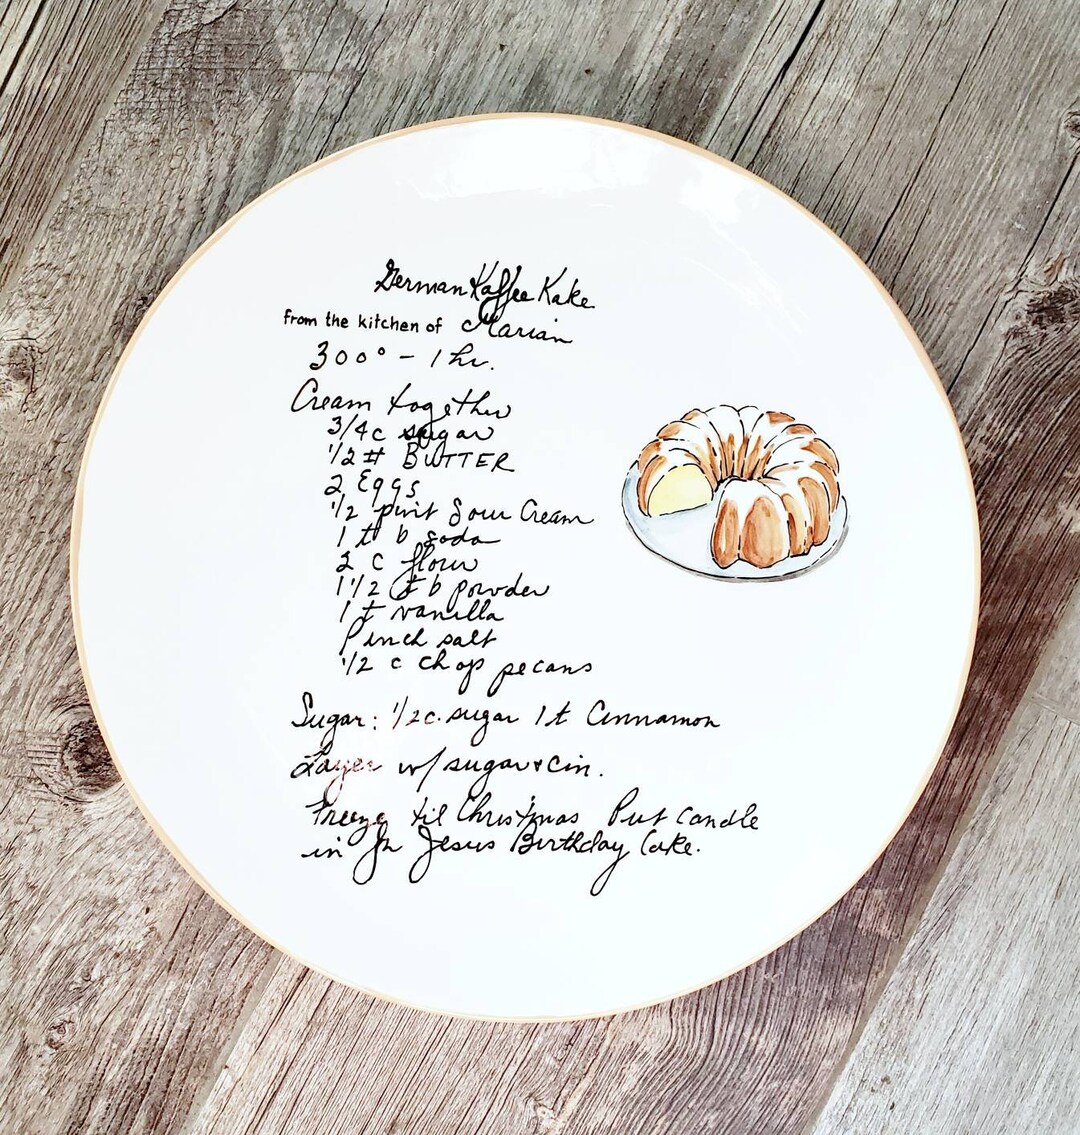 German Kaffee Kake
from the kitchen of Marian
300° - 1 hr.
Cream together
3/4 c sugar
1/2 # BUTTER
2 Eggs
1/2 pint Sour Cream
1 t b soda
2 c flour
1 1/2 t b powder
1 t vanilla
Pinch salt
1/2 c chop pecans
Sugar: 1/2 c. sugar 1 t Cinnamon
Layer w/ sugar & cin.
Freeze til Christmas Put candle
in Jesus Birthday Cake.